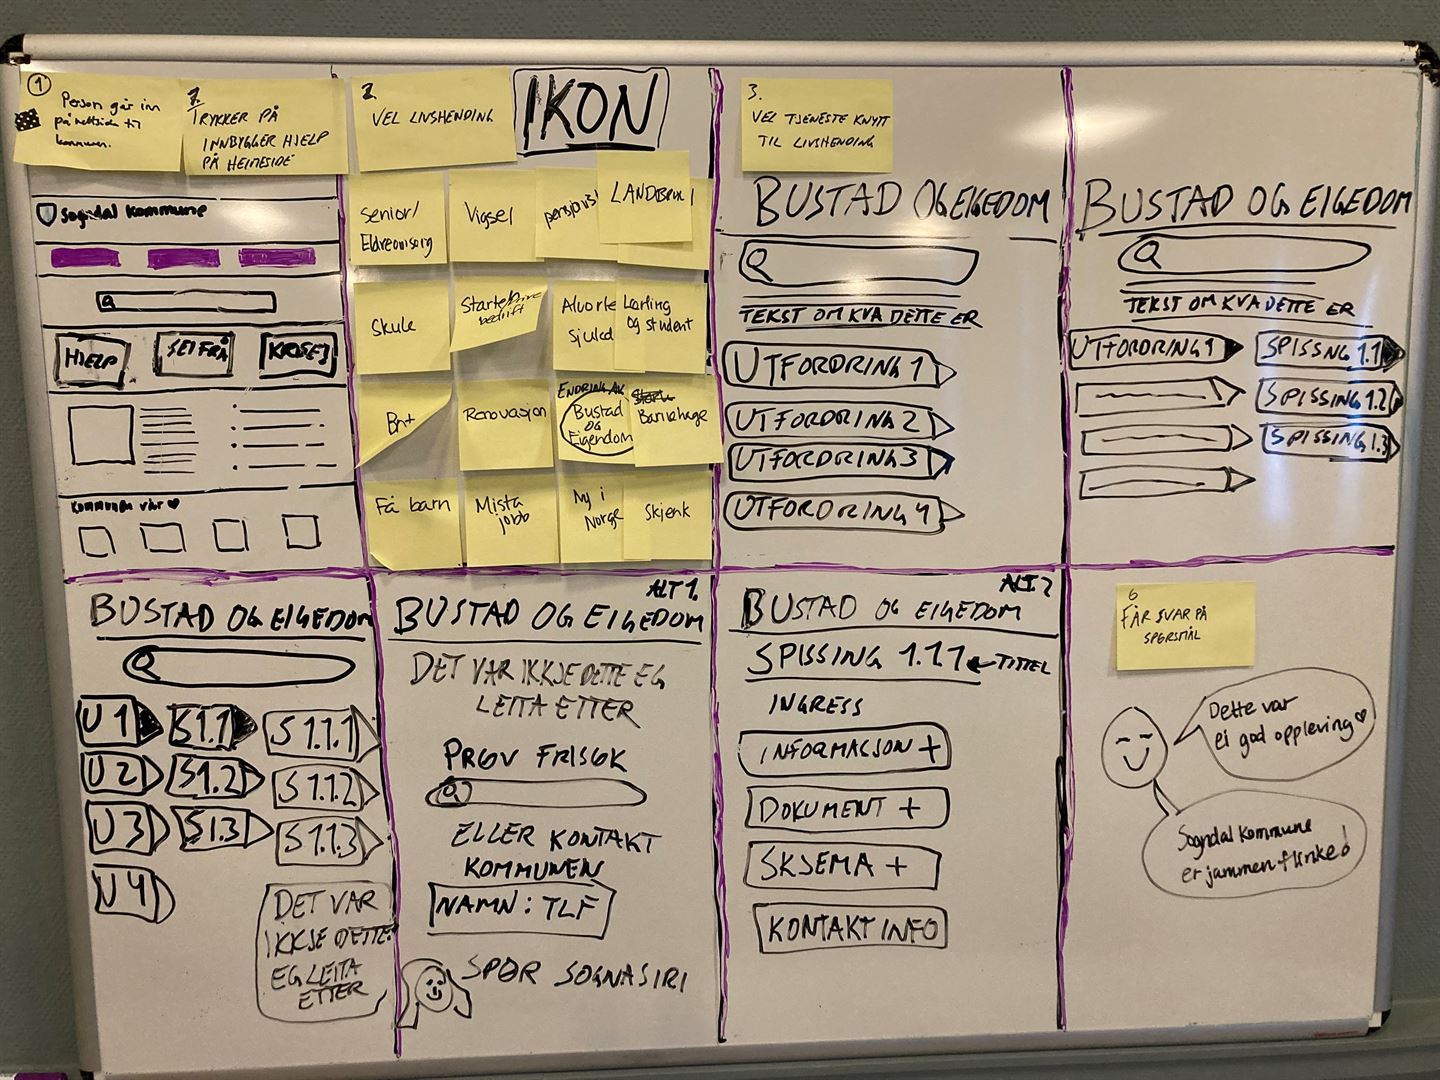 1
Person går inn
på nettsida til
kommunen.
2.
TRYKKER PÅ
INNBYGGER HJELP
PÅ HEIMESIDE
Sogndal kommune
HJELP
SEI FRÅ
KRISE!
Kommunen vår ♥
2.
VEL LIVSHENDING
IKON
Senior/
Eldreomsorg
Vigsel
pensjonist
LANDBRUK
Skule
Starte/drive
bedrift
Alvorleg
sjukd
Lærling
og student
Renovasjon
ENDRING AV
Bustad
OG
Eigendom
Barnehage
Få barn
Mista
jobb
Ny i
Norge
Skjenk
3.
VEL TJENESTE KNYTT
TIL LIVSHENDING
BUSTAD OG EIGEDOM
TEKST OM KVA DETTE ER
UTFORDRING 1
UTFORDRING 2
UTFORDRING 3
UTFORDRING 4
BUSTAD OG EIGEDOM
TEKST OM KVA DETTE ER
UTFORDRING 1
SPISSNG 1.1
SPISSING 1.2
SPISSING 1.3
BUSTAD OG EIGEDOM
U 1
S1.1
S 1.1.1
U 2
S1.2
S 1.1.2
U 3
S1.3
S 1.1.3
U 4
DET VAR
IKKJE DETTE
EG LEITA
ETTER
ALT 1.
BUSTAD OG EIGEDOM
DET VAR IKKJE DETTE EG
LEITA ETTER
PRØV FRISØK
ELLER KONTAKT
KOMMUNEN
NAMN: TLF
SPØR SOGNASIRI
ALT 2
BUSTAD OG EIGEDOM
SPISSING 1.1.1 ← TITTEL
INGRESS
INFORMASJON +
DOKUMENT +
SKJEMA +
KONTAKT INFO
6
FÅR SVAR PÅ
SPØRSMÅL
Dette var
ei god oppleving ♥
Sogndal kommune
er jammen flinke!